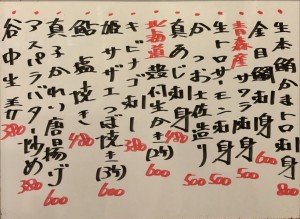 生本鮪中トロ刺身 800
金目鯛刺身 600
青森産サワラ刺身 500
生トロサーモン刺身 500
かつお土佐造り 500
真あじ刺身 480
北海道産生かき(3ヶ)
キビナゴ刺し
姫サザエつぼ焼き(3ヶ) 600
鮎塩焼き 480
真子かれい唐揚げ 600
アスパラバター炒め 380
谷中生姜 380